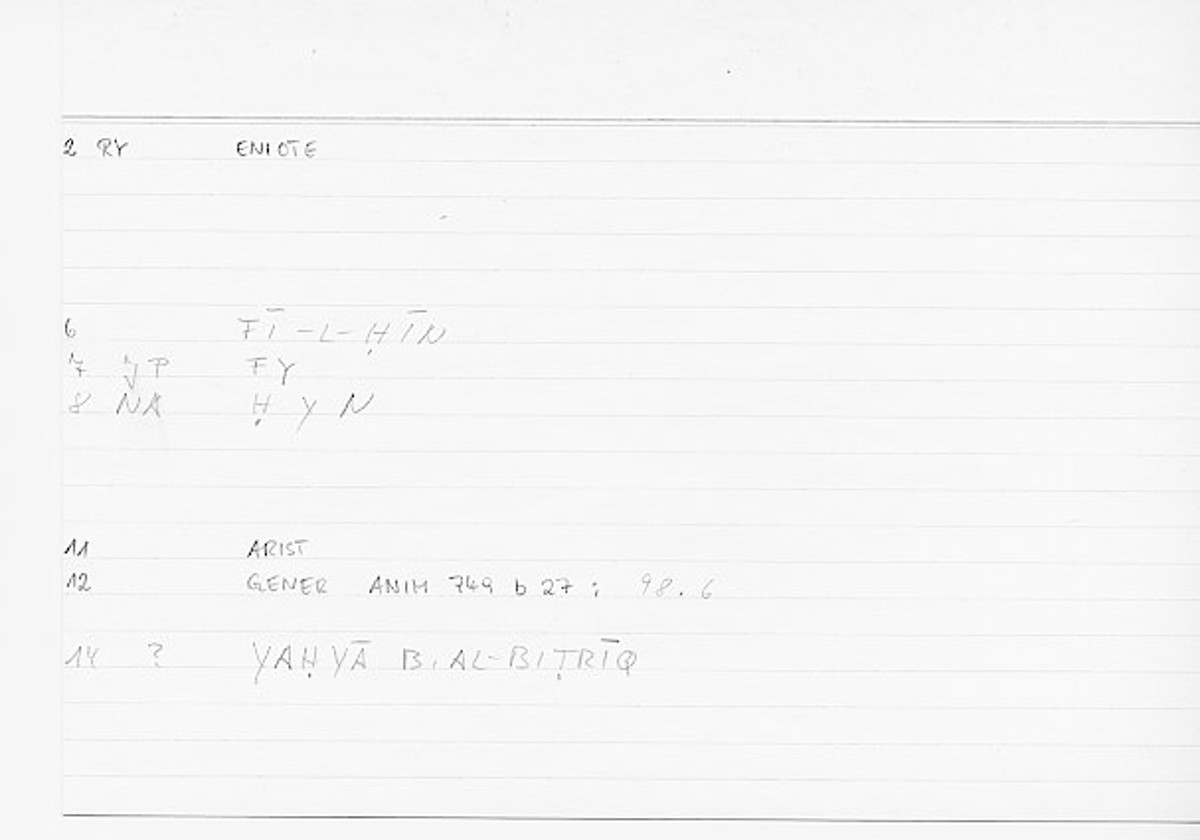 2 RY ENIOTE
6 FĪ-L-ḤĪN
7 JP FY
8 NA Ḥ Y N
11 ARIST
12 GENER ANIM 749 b 27 ; 98.6
14 ? YAḤYĀ B. AL-BIṬRĪQ